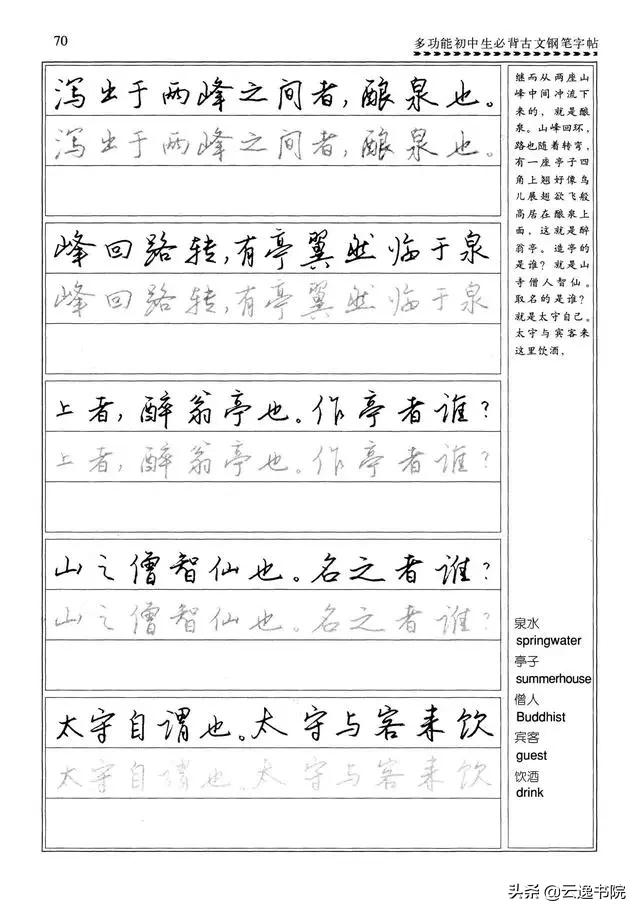 70
多功能初中生必背古文钢笔字帖
泻出于两峰之间者,酿泉也。
泻出于两峰之间者,酿泉也。
峰回路转,有亭翼然临于泉
峰回路转,有亭翼然临于泉
上者,醉翁亭也。作亭者谁?
上者,醉翁亭也。作亭者谁?
山之僧智仙也。名之者谁?
山之僧智仙也。名之者谁?
太守自谓也。太守与客来饮
太守自谓也。太守与客来饮
继而从两座山
峰中间冲流下
来的,就是酿
泉。山峰回环,
路也随着转弯,
有一座亭子四
角上翘好像鸟
儿展翅欲飞般
高居在酿泉上
面,这就是醉
翁亭。造亭的
是谁?就是山
寺僧人智仙。
取名的是谁?
就是太守自己。
太守与宾客来
这里饮酒,
泉水
springwater
亭子
summerhouse
僧人
Buddhist
宾客
guest
饮酒
drink
头条 @云逸书院